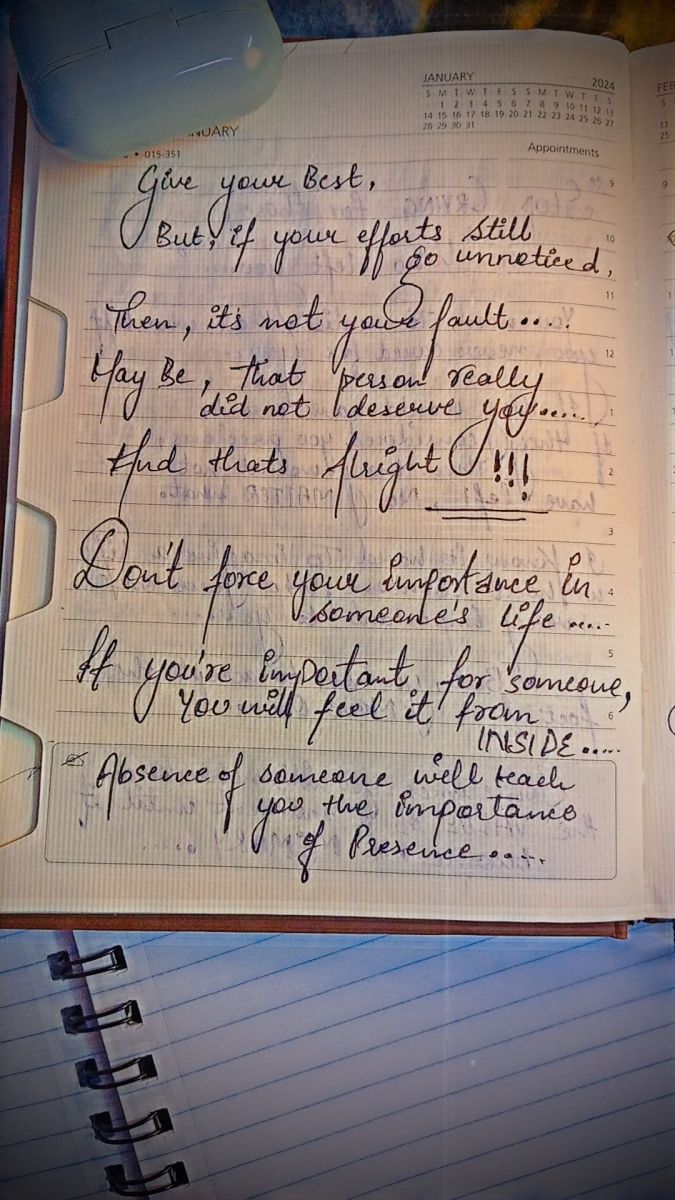 JANUARY 2024
S M T W T F S S M T W T F S
1 2 3 4 5 6 7 8 9 10 11 12 13
14 15 16 17 18 19 20 21 22 23 24 25 26 27
28 29 30 31
• 015-351
Appointments
Give your Best,
But, if your efforts still
go unnoticed,
Then, it's not your fault....
May Be, that person really
did not deserve you.....
And thats Alright !!!
Don't force your importance in
someone's life ....
If you're important for someone,
You will feel it from
INSIDE.....
Absence of someone will teach
you the importance
of Presence.....
9
10
11
12
1
2
3
4
5
6
FEB
S
11
25